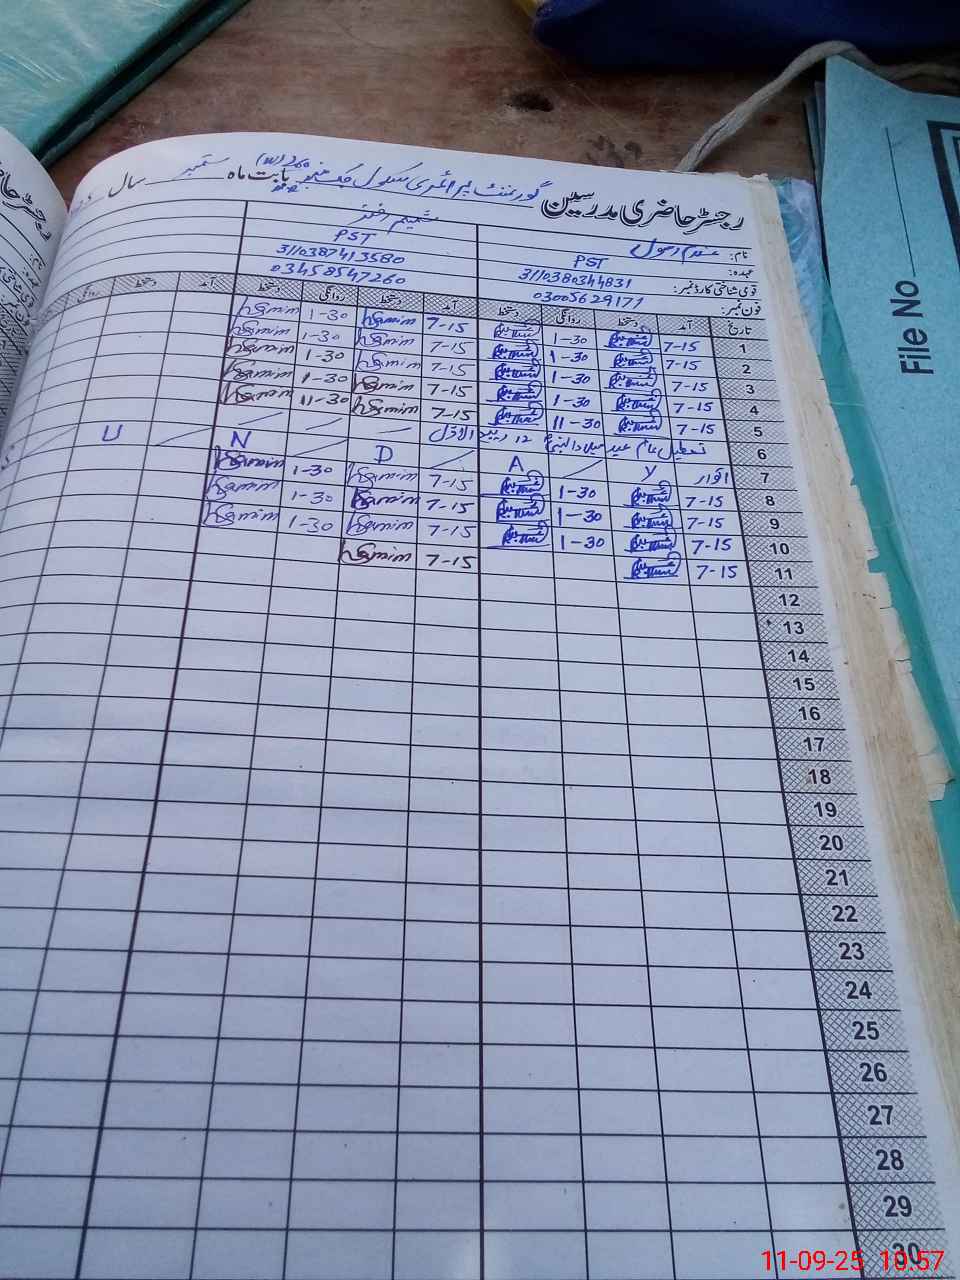 رجسٹر حاضری مدرسین گورنمنٹ پرائمری سکول بابت ماہ ستمبر سال
نام: غلام رسول شمیم اختر
عہدہ: PST PST
قومی شناختی کارڈ نمبر: 3110380344831 3110387413580
فون نمبر: 03005629171 03458547260
تاریخ آمد دستخط روانگی دستخط آمد دستخط روانگی دستخط آمد دستخط روانگی
1 7-15 1-30 7-15 Shamim 1-30 Shamim
2 7-15 1-30 7-15 Shamim 1-30 Shamim
3 7-15 1-30 7-15 Shamim 1-30 Shamim
4 7-15 1-30 7-15 Shamim 1-30 Shamim
5 7-15 11-30 7-15 Shamim 11-30 Shamim
6 تعطیل عام عید میلاد النبی ۱۲ ربیع الاول
7 اتوار Y A D N U
8 7-15 1-30 7-15 Shamim 1-30 Shamim
9 7-15 1-30 7-15 Shamim 1-30 Shamim
10 7-15 1-30 7-15 Shamim 1-30 Shamim
11 7-15 7-15 Shamim
12
13
14
15
16
17
18
19
20
21
22
23
24
25
26
27
28
29
30
File No
رجسٹر حا
نام:
11-09-25 10:57